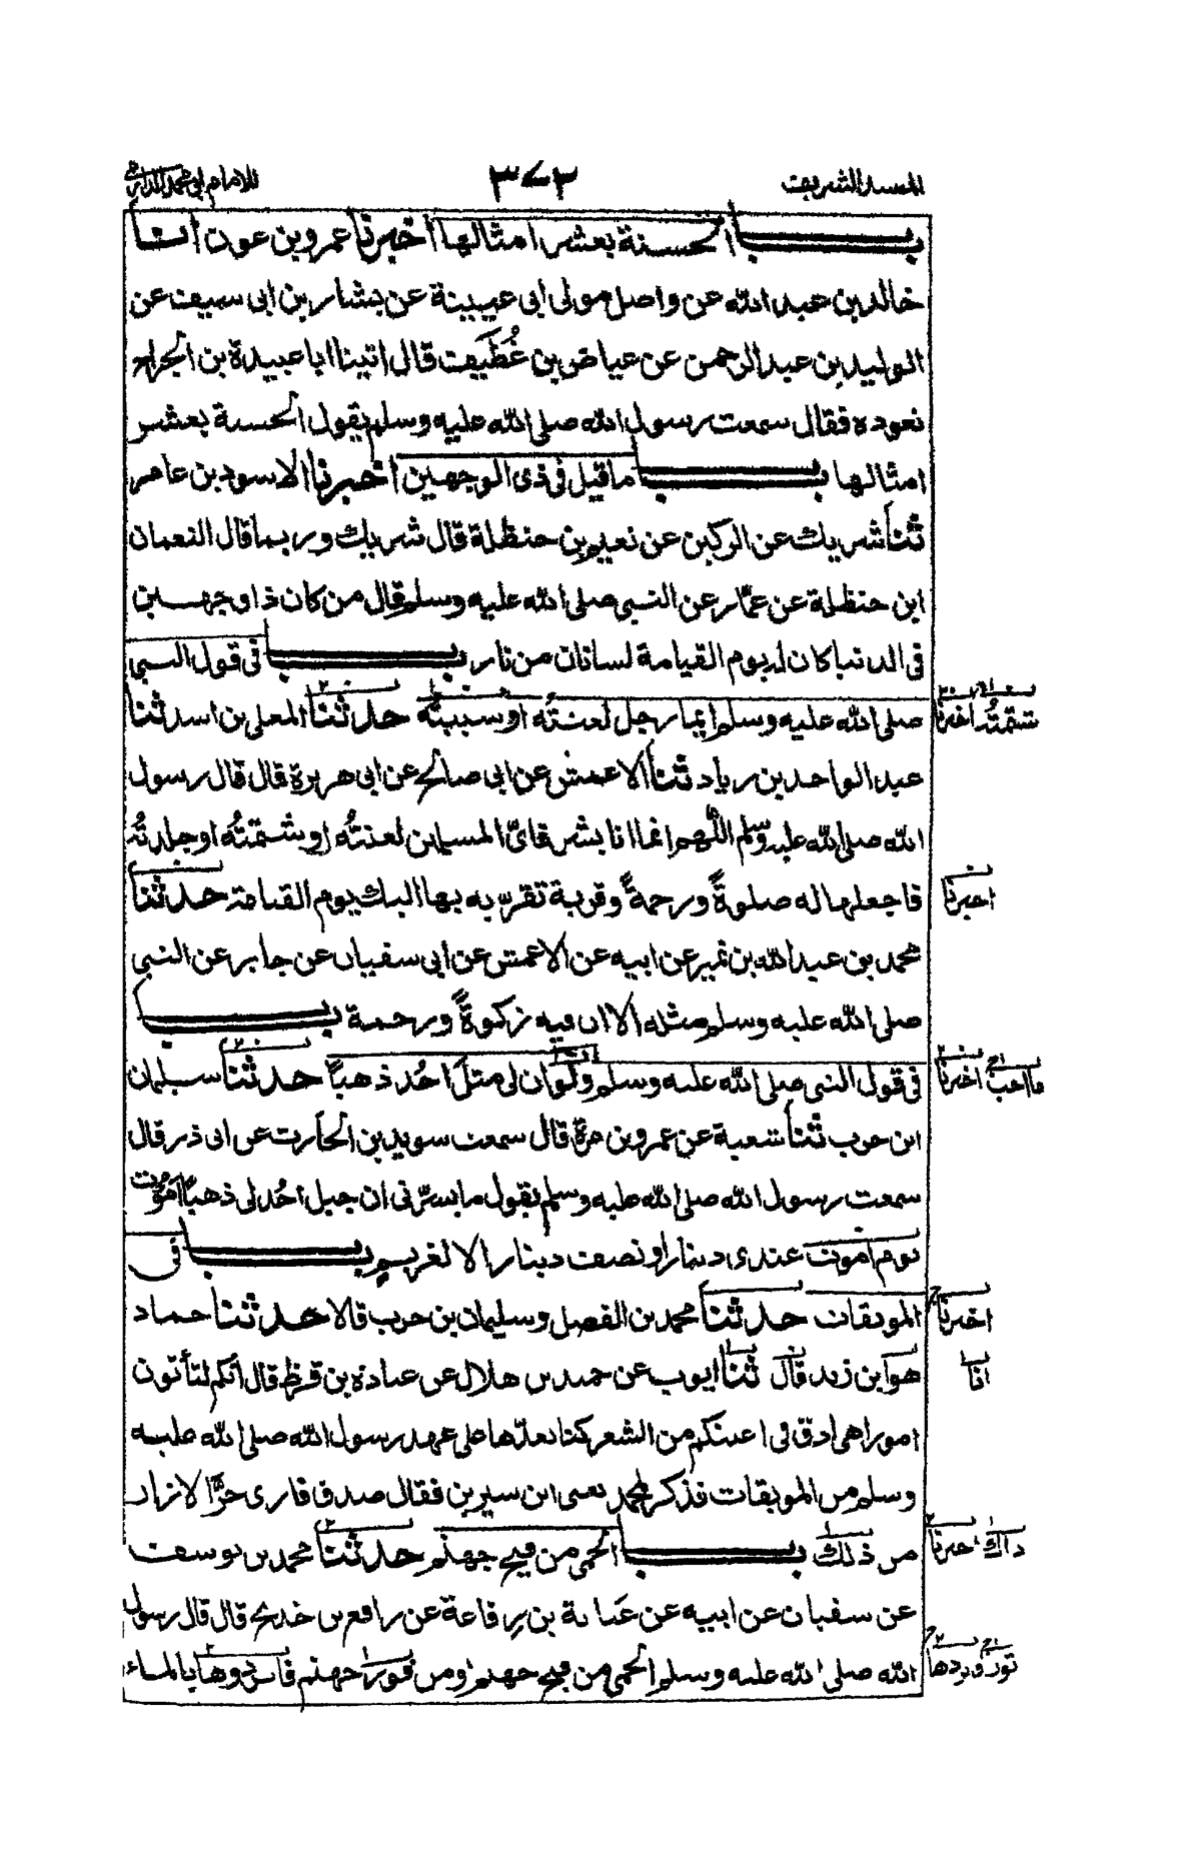 المسند الشريف ٣٧٣ للامام ابي محمد الدارمي
بـــاب الحسنة بعشر امثالها اخبرنا عمرو بن عون انا
خالد بن عبد الله عن واصل مولى ابى عيينة عن بشار بن ابى سيف عن
الوليد بن عبد الرحمن عن عياض بن غُطَيف قال اتينا ابا عبيدة بن الجراح
نعوده فقال سمعت رسول الله صلى الله عليه وسلم يقول الحسنة بعشر
امثالها بـــاب ما قيل فى ذى الوجهين اخبرنا الاسود بن عامر
ثنا شريك عن الركين عن نعيم بن حنظلة قال شريك وربما قال النعمان
ابن حنظلة عن عمّار عن النبى صلى الله عليه وسلم قال من كان ذا وجهين
فى الدنيا كان له يوم القيامة لسانان من نار بـــاب فى قول النبى
صلى الله عليه وسلم ايما رجل لعنتُه او سببتُه حدثنا المعلى بن اسد ثنا
شتمتُه اخبرنا
عبد الواحد بن زياد ثنا الاعمش عن ابى صالح عن ابى هريرة قال قال رسول
الله صلى الله عليه وسلم اللّٰهم انما انا بشر فاىّ المسلمين لعنتُه او شتمتُه او جلدتُه
فاجعلها له صلوةً ورحمةً وقربة تقرّبه بها اليك يوم القيامة حدثنا
اخبرنا
محمد بن عبد الله بن نمير عن ابيه عن الاعمش عن ابى سفيان عن جابر عن النبى
صلى الله عليه وسلم مثله الا ان فيه زكوةً ورحمة بـــاب
فى قول النبى صلى الله عليه وسلم ولو ان لى مثلَ احُد ذهباً حدثنا سليمان
ما احب اخبرنا
ابن حرب ثنا شعبة عن عمرو بن مرة قال سمعت سويد بن الحارث عن ابى ذر قال
سمعت رسول الله صلى الله عليه وسلم يقول ما يسرّنى ان جبل احُد لى ذهبًا اموُت
يوم اموت عندى دينار او نصف دينار الا لغريم بـــاب فى
الموبقات حدثنا محمد بن الفضل وسليمان بن حرب قالا حدثنا حماد
اخبرنا
هو ابن زيد قال ثنا ايوب عن حميد بن هلال عن عبادة بن قرظ قال انكم لتأتون
انا
امورا هى ادق فى اعينكم من الشعر كنا نعدّها على عهد رسول الله صلى الله عليه
وسلم من الموبقات فذكر لمحمد يعنى ابن سيرين فقال صدق فارى جرّ الازار
من ذلك بـــاب الحمى من فيح جهنم حدثنا محمد بن يوسف
ذاك اخبرنا
عن سفيان عن ابيه عن عَباية بن رِفاعة عن رافع بن خديج قال قال رسول
الله صلى الله عليه وسلم الحمى من فيح جهنم او من فور جهنم فابردوها بالماء